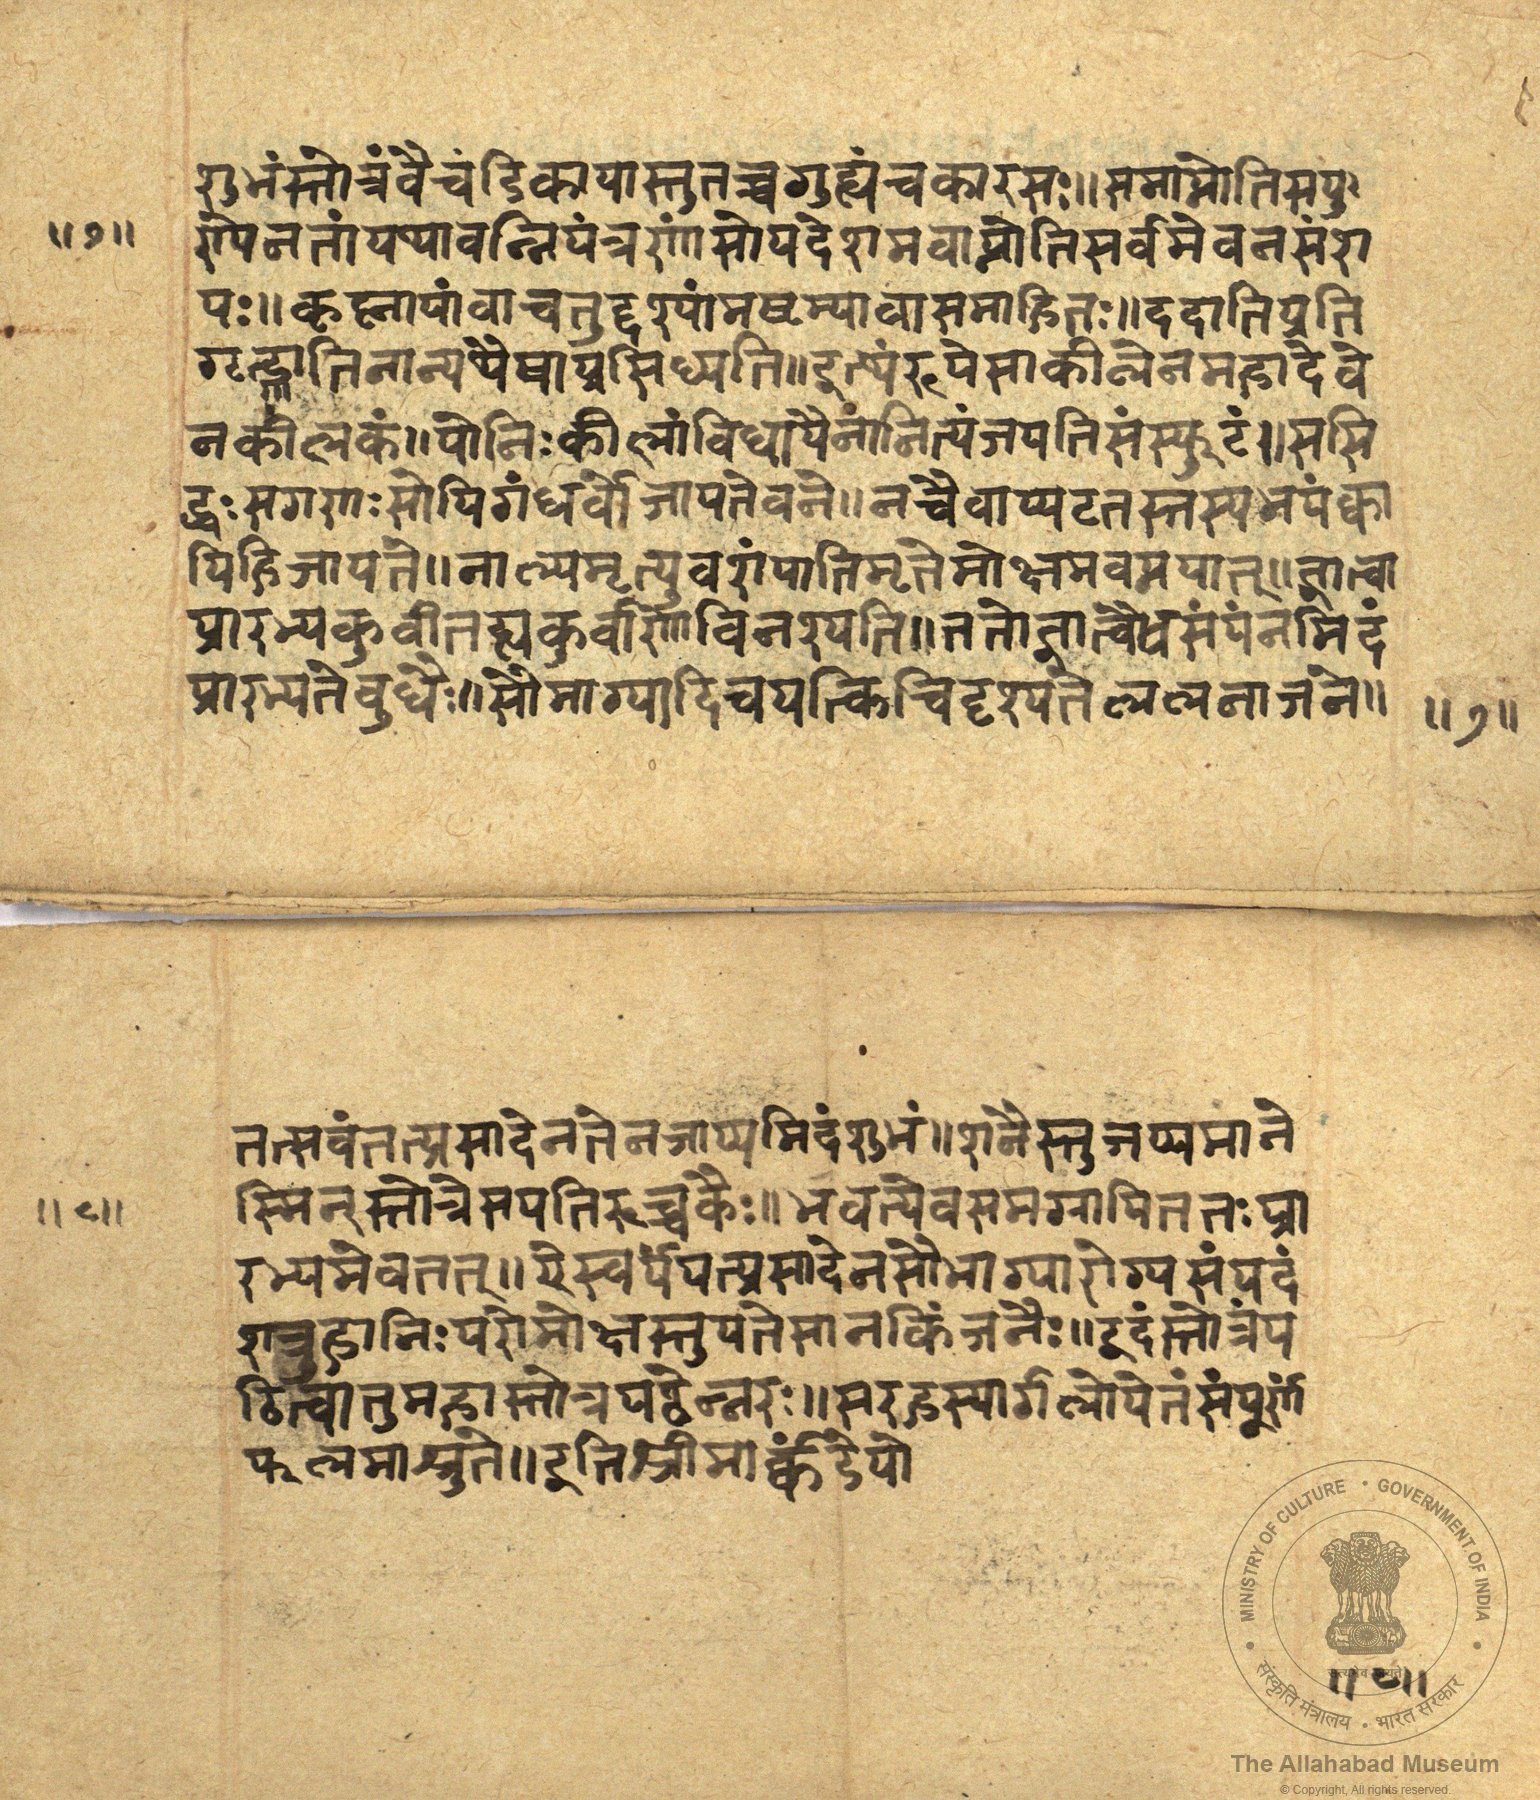 शुभंस्तोत्रंवैचंडिकायास्तुतच्चगुह्यंचकारसः॥समाप्नोतिसपु
॥७॥
ण्येनतांयथावन्नियंत्रणांसोपदेशमवाप्नोतिसर्वमेवनसंश
यः॥कृष्नायांवाचतुर्दृश्यामष्टम्यावासमाहितः॥ददातिप्रति
गृह्णातिनान्यथैषाप्रसिध्यति॥इत्थंरूपेसाकीलेनमहादेवे
नकीलकं॥योनिःकीलांविधायैनांनित्यंजपतिसंस्फुटं॥ससि
द्धःसगणःसोपिगंधर्वोजायतेवने॥नचैवाप्यटतस्तस्यभयंक्वा
पिहिजायते॥नाल्पमृत्युवशंयातिमृतेमोक्षमवाप्नयात्॥ज्ञात्वा
प्रारभ्यकुर्वीतह्यकुर्वाणोविनश्यति॥ततोज्ञात्वैवसंपंनमिदं
प्रारभ्यतेबुधैः॥सौभाग्यादिचयत्किंचिदृश्यतेललनाजने॥
॥७॥
तत्सर्वंतत्प्रसादेनतेनजाप्यमिदंशुभं॥शनैस्तुजप्यमाने
॥८॥
स्मिन्स्तोत्रेसपतिरूच्चकैः॥भवत्येवसमग्रापिततःप्रा
रभ्यमेवतत्॥ऐस्वर्यंयत्प्रसादेनसौभाग्यारोग्यसंपदं
शत्रुहानिःपरोमोक्षस्तुयतेसानकिंजनैः॥इदंस्तोत्रंप
ठित्वातुमहास्तोत्रपठेन्नरः॥सरहस्यार्गलोपेतंसंपूर्णं
फलमाश्नुते॥इतिश्रीमार्कंडेयो
॥८॥
MINISTRY OF CULTURE • GOVERNMENT OF INDIA
सत्यमेव जयते
संस्कृति मंत्रालय • भारत सरकार
The Allahabad Museum
© Copyright, All rights reserved.